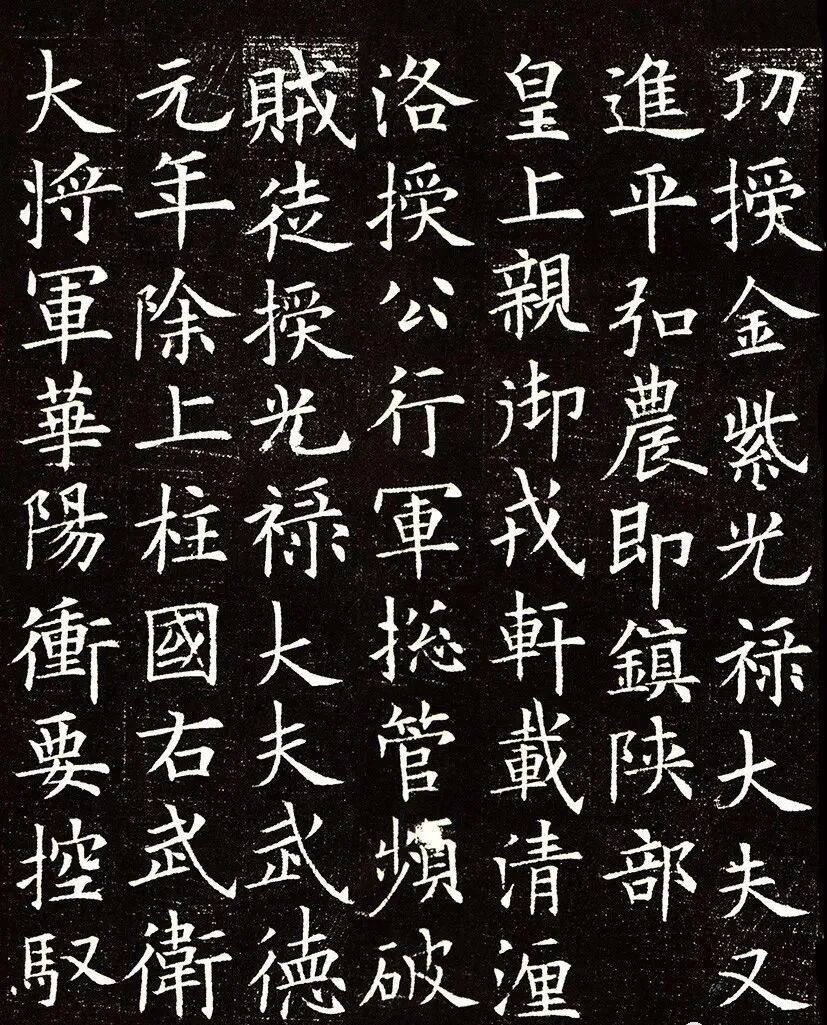 功授金紫光禄大夫又
進平弘農即鎮陝部
皇上親御戎軒載清湹
洛授公行軍捴管頻破
賊徒授光禄大夫武徳
元年除上柱國右武衛
大将軍華陽衝要控馭